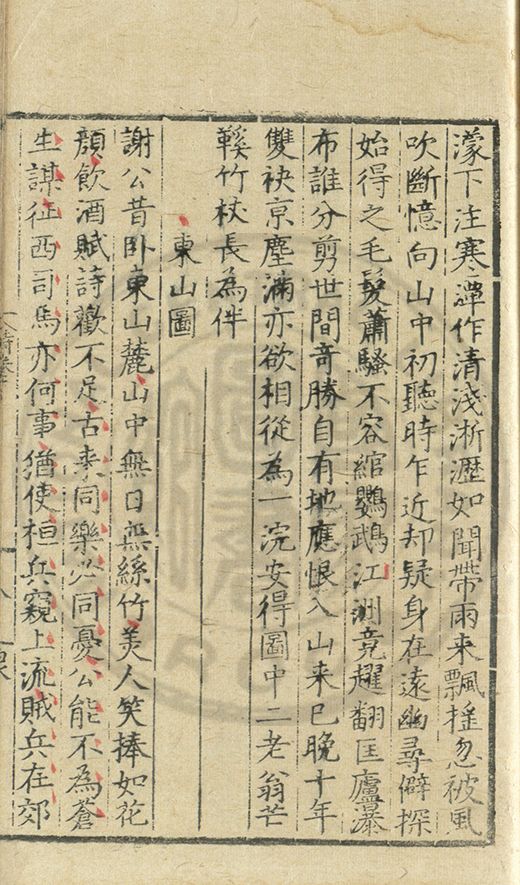 濛下注寒潭作清淺淅瀝如聞帶雨来飄揺忽被風
吹斷憶向山中初聽時乍近却疑身在遠幽尋僻探
始得之毛髮蕭騷不容綰鸚鵡江洲竟趯翻匡廬瀑
布誰分剪世間竒勝自有地應恨入山来已晚十年
雙袂京塵滿亦欲相從為一浣安得圖中二老翁芒
鞵竹杖長為伴
東山圖
謝公昔卧東山麓山中無日無絲竹美人笑捧如花
顔飲酒賦詩歡不足古来同樂必同憂公能不為蒼
生謀征西司馬亦何事猶使桓兵窺上流賊兵在郊